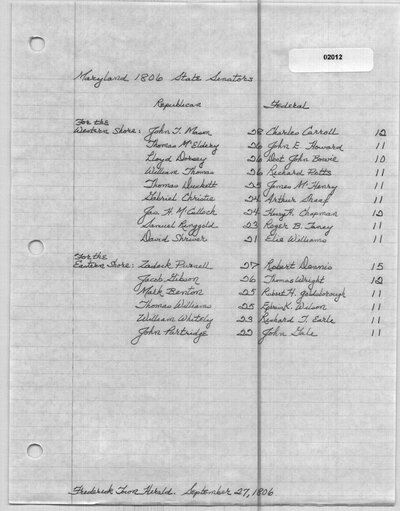 02012
Maryland 1806 State Senators
Republican Federal
For the
Western Shore: John T. Mason 28 Charles Carroll 12
Thomas McEldery 26 John E. Howard 11
Lloyd Dorsey 26 Doct John Bowie 10
William Thomas 26 Richard Potts 11
Thomas Duckett 25 James McHenry 11
Gabriel Christie 24 Arthur Shaaf 11
Jas. H. McCulloch 24 Hugh Chapman 12
Samuel Ringgold 23 Roger B. Taney 11
David Shriver 21 Elie Williams 11
For the
Eastern Shore: Zadock Purnell 27 Robert Dennis 15
Jacob Gibson 26 Thomas Wright 12
Mark Benton 25 Robert H. Goldsborough 11
Thomas Williams 25 Ephraim K. Wilson 11
William Whitely 23 Richard T. Earle 11
John Partridge 22 John Gale 11
Frederick Town Herald. September 27, 1806